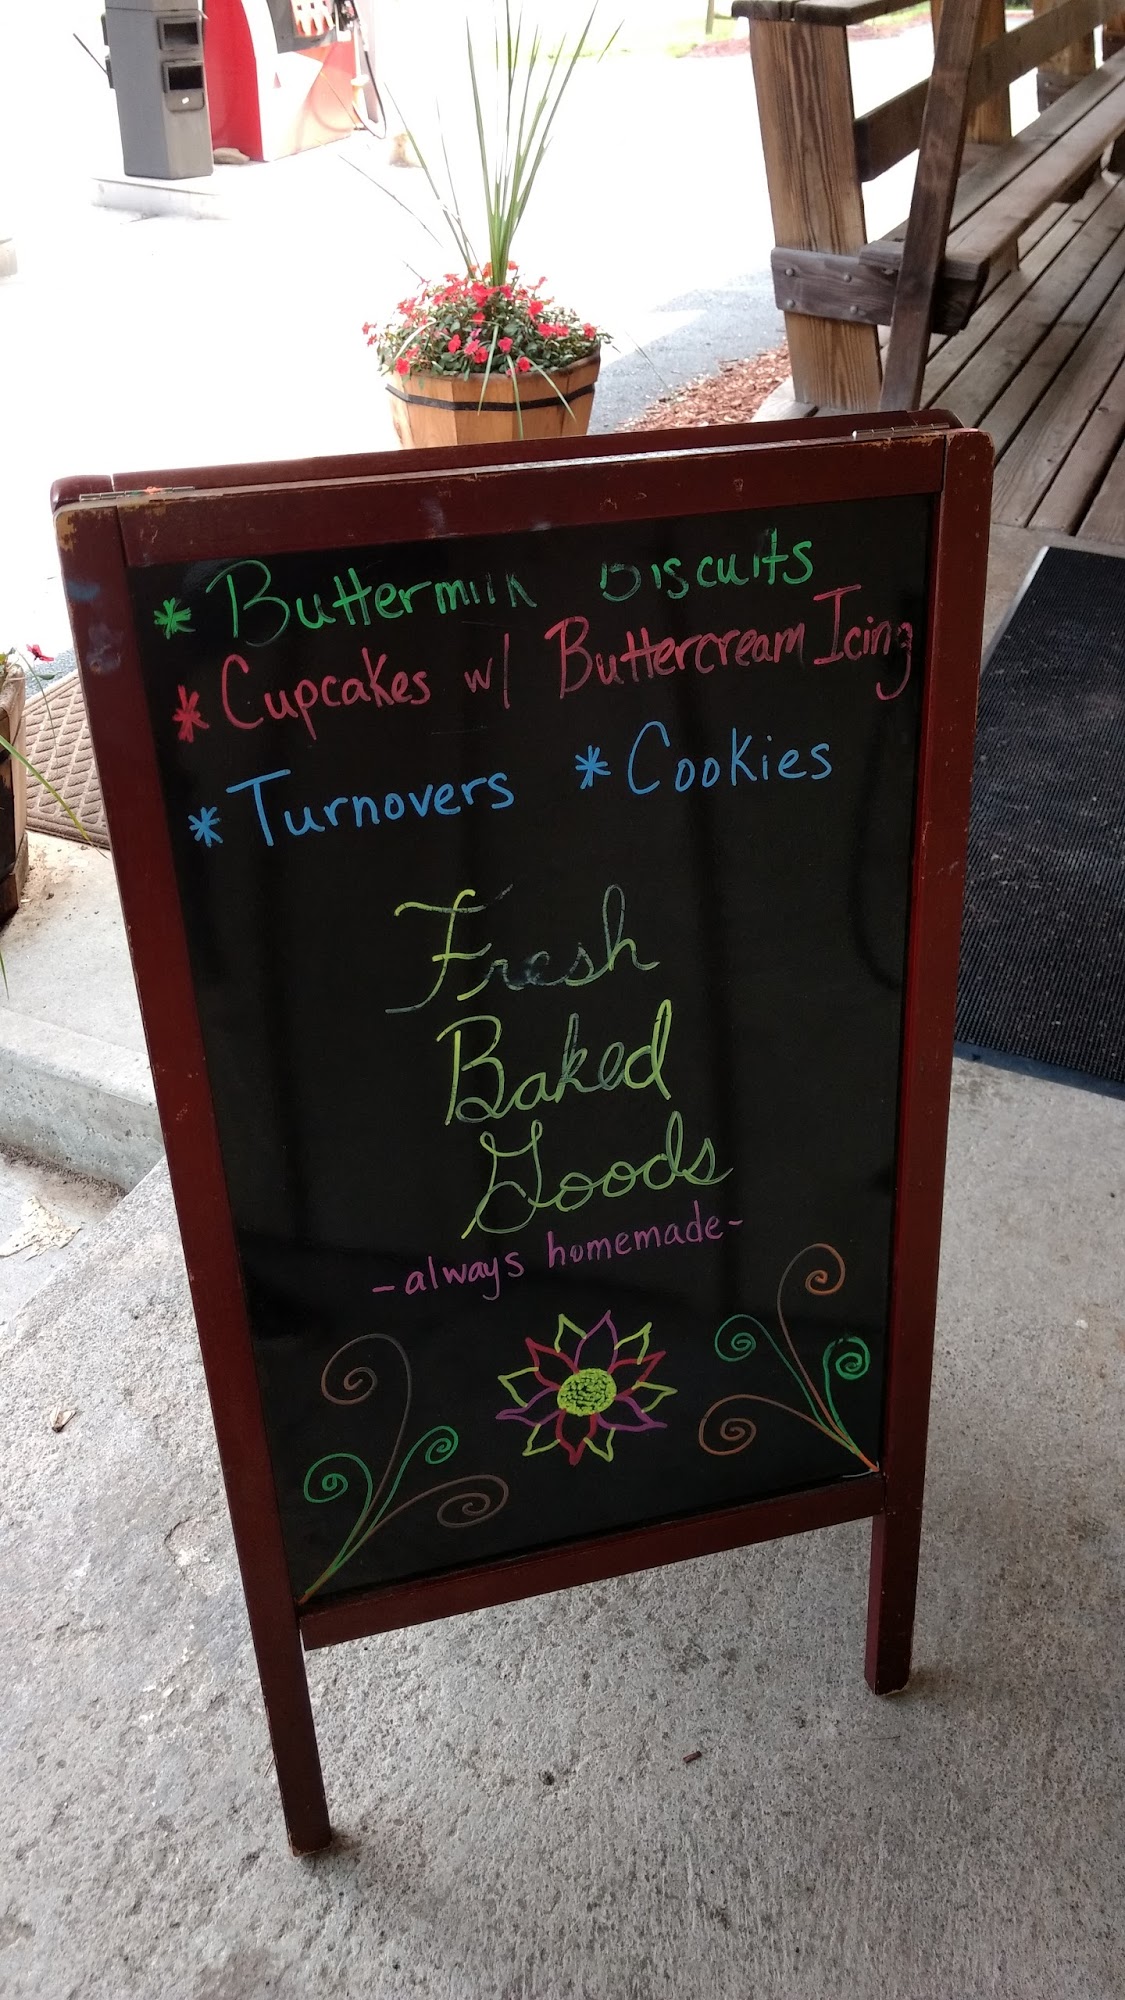 * Buttermilk Biscuits
* Cupcakes w/ Buttercream Icing
* Turnovers * Cookies
Fresh
Baked
Goods
-always homemade-